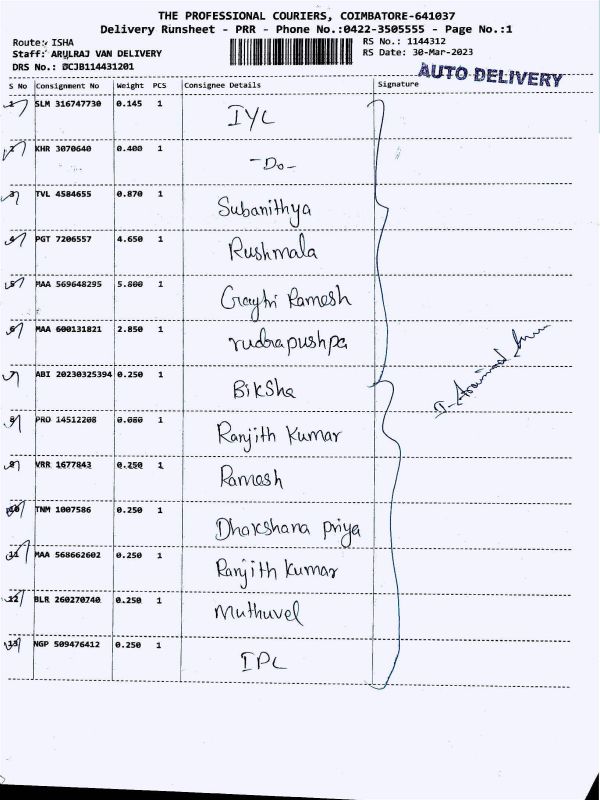 THE PROFESSIONAL COURIERS, COIMBATORE-641037
Delivery Runsheet - PRR - Phone No.:0422-3505555 - Page No.:1
Route: ISHA
RS No.: 1144312
Staff: ARULRAJ VAN DELIVERY
RS Date: 30-Mar-2023
DRS No.: DCJB114431201
AUTO DELIVERY
S No Consignment No Weight PCS Consignee Details Signature
1 SLM 316747730 0.145 1 IYC
2 KHR 3070640 0.400 1 -Do-
3 TVL 4584655 0.870 1 Subanithya
4 PGT 7206557 4.650 1 Rushmala
5 MAA 569648295 5.800 1 Gaytri Ramesh
6 MAA 600131821 2.850 1 rudrapushpa
7 ABI 20230325394 0.250 1 Biksha
8 PRO 14512208 0.060 1 Ranjith Kumar
9 VRR 1677843 0.250 1 Ramesh
10 TNM 1007586 0.250 1 Dhakshana priya
11 MAA 568662602 0.250 1 Ranjith Kumar
12 BLR 260270740 0.250 1 Muthuvel
13 NGP 509476412 0.250 1 IPC